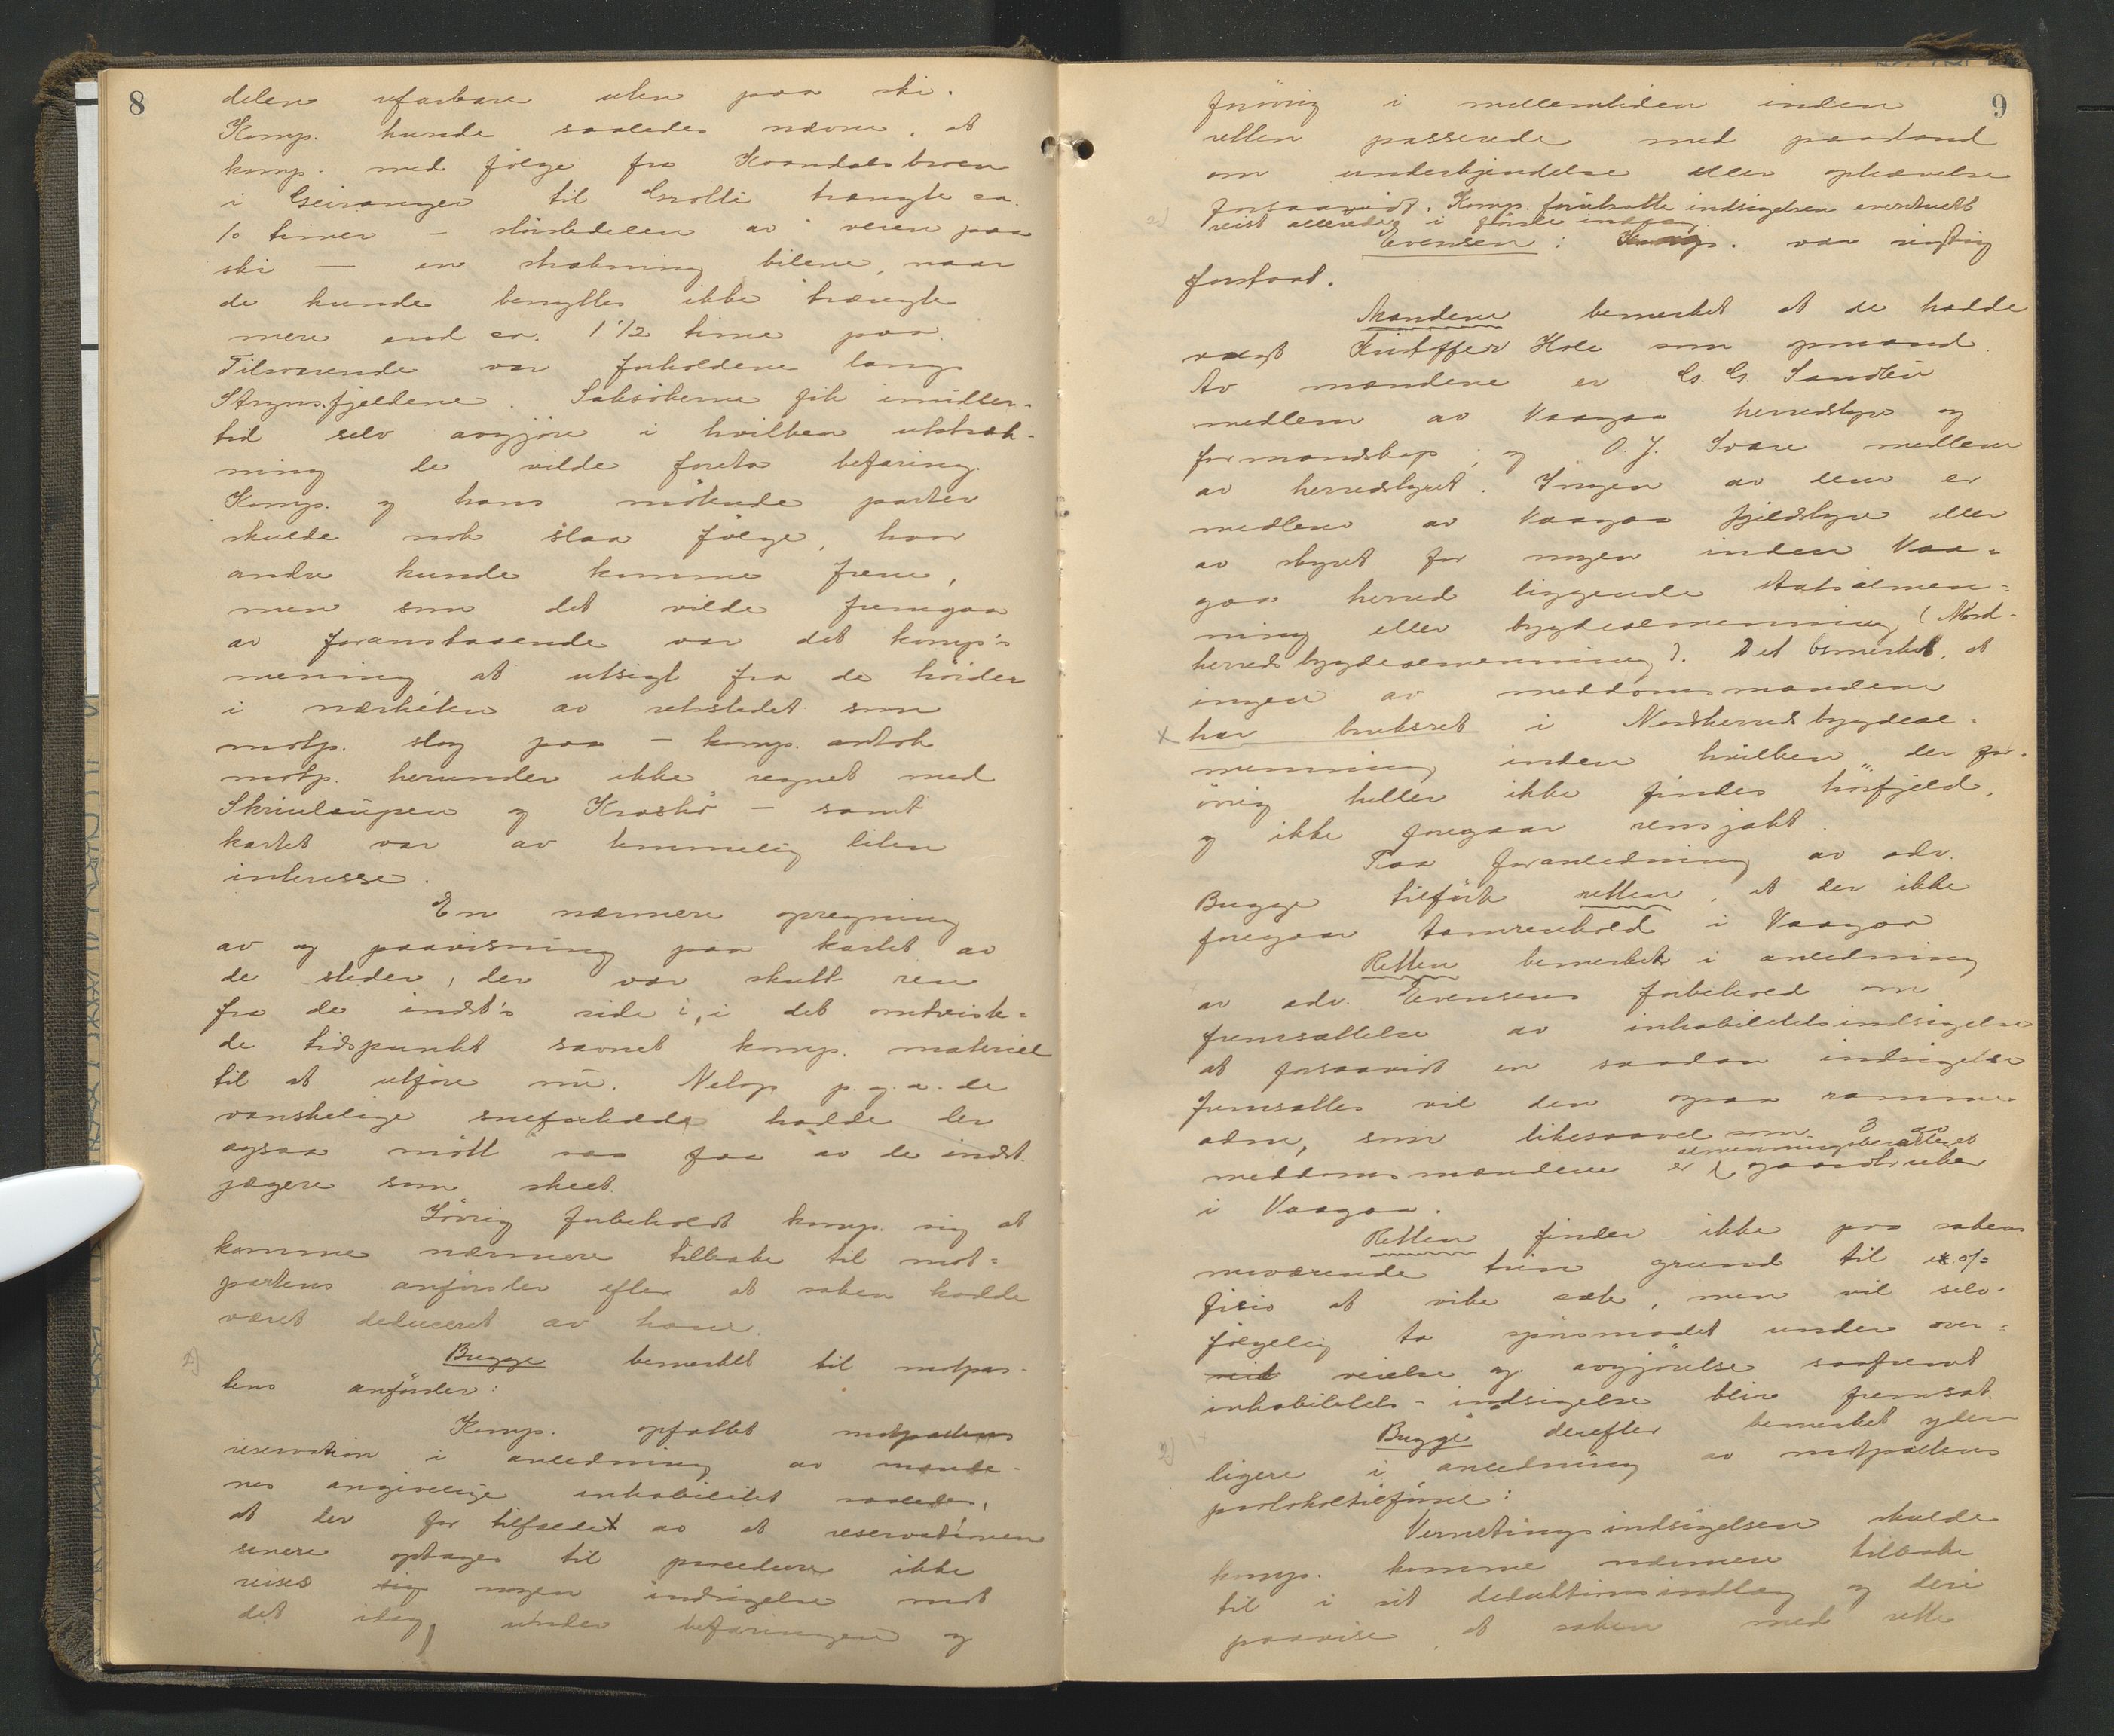 8
delen ufarbare uten paa ski.
Komp. kunde saaledes nævne, at
komp. med følge fra Kvandalsbroen
i Geiranger til Grotli trængte ca.
10 timer – størstedelen av veien paa
ski – en strækning bilene, naar
de kunde benyttes ikke trængte
mere end ca. 1 1/2 time paa.
Tilsvarende var forholdene langs
Strynsfjeldene. Saksøkerne fik imidler-
tid selv avgjøre i hvilken utstræk-
ning de vilde foreta befaring.
Komp. og hans møtende parter
skulde nok slaa følge, hvor
andre kunde komme frem,
men som det vilde fremgaa
av foranstaaende var det komp's
mening at utsigt fra de høider
i nærheten av retsstedet som
motp. slog paa – komp. antok
motp. herunder ikke regnet med
Skrinlaupen og Kroshø – samt
kartet var av temmelig liten
interesse.
En nærmere opregning
av og paavisning paa kartet av
de steder, der var skutt ren
fra de indst's side i, i det omtviste-
de tidspunkt savnet komp. materiel
til at utføre nu. Netop p.g.a. de
vanskelige sneforholde hadde der
ogsaa møtt saa faa av de indst.
jægere som skeet.
Iøvrig forbeholdt komp. sig at
komme nærmere tilbake til mot-
partens anførsler efter at saken hadde
været deduceret av ham.
2) Bugge bemerket til motpar-
tens anførsler:
Komp. opfattet motpartens
reservation i anledning av mænde-
nes angivelige inhabilitet saaledes,
at der for tilfældet av at reservationen
senere optages til procedure ikke
reises sig nogen indsigelse mot
det idag under befaringen og
9
forøvrig i mellemtiden inden
retten passerede med paastand
om underkjendelse eller ophævelse
forsaavidt. Komp. forutsatte indsigelsen eventuelt
reist allerede i første indlæg.
Evensen: Komp. var rigtig
forstaat.
Mændene bemerket at de hadde
valgt Kristoffer Hole som opmand.
Av mændene er G. G. Sandbu
medlem av Vaagaa herredstyre og
formandskap; og O. J. Svare medlem
av herredstyret. Ingen av dem er
medlem av Vaagaa fjeldstyre eller
av styret for nogen inden Vaa-
gaa herred liggende statsalmen-
ning eller bygdealmenning (Nord-
herreds bygdealmenning). Det bemerket, at
ingen av meddomsmændene
x har bruksret i Nordherreds bygdeal-
menning inden hvilken der for-
øvrig heller ikke findes høifjeld,
og ikke foregaar rensjakt.
Paa foranledning av adv.
Bugge tilførte retten, at der ikke
foregaar tamrenhold i Vaagaa.
Retten bemerket i anledning
av adv. Evensens forbehold om
fremsættelse av inhabilitetsindsigelse
at forsaavidt en saadan indsigelse
fremsættes vil den ogsaa ramme
adm, som likesaavel som 3 av
meddomsmændene er almenningsberettiget gaardbruker
i Vaagaa.
Retten finder ikke paa sakens
nuværende trin grund til ex of-
ficio at vike sæte, men vil selv-
følgelig ta spørsmaalet under over-
veielse og avgjørelse saafremt
inhabilitets-indsigelse blir fremsat.
2) Bugge derefter bemerket yder-
ligere i anledning av motpartens
protokoltilførsel:
Vernetingsindsigelsen skulde
komp. komme nærmere tilbake
til i sit deduktionsindlæg og deri
paavise, at saken med rette